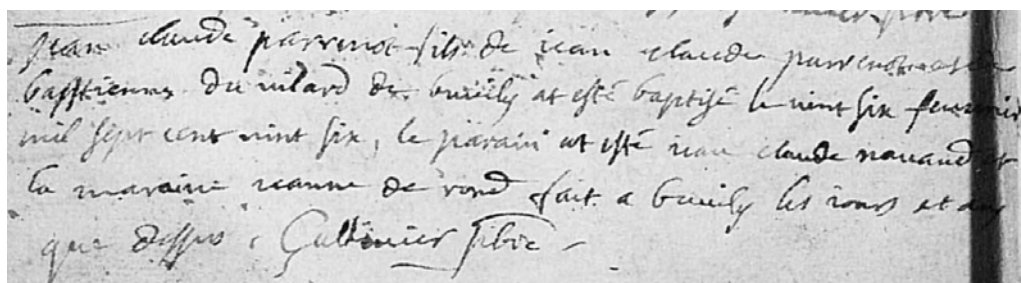 Jean claude parrenot fils de jean claude parrenot et de
bastienne du vilard de breuily at esté baptisé le vint six feuvrier
mil sept cent vint six, le parain at esté jean claude navaud et
la maraine jeanne de rond fait a breuily les jours et an
que dessus